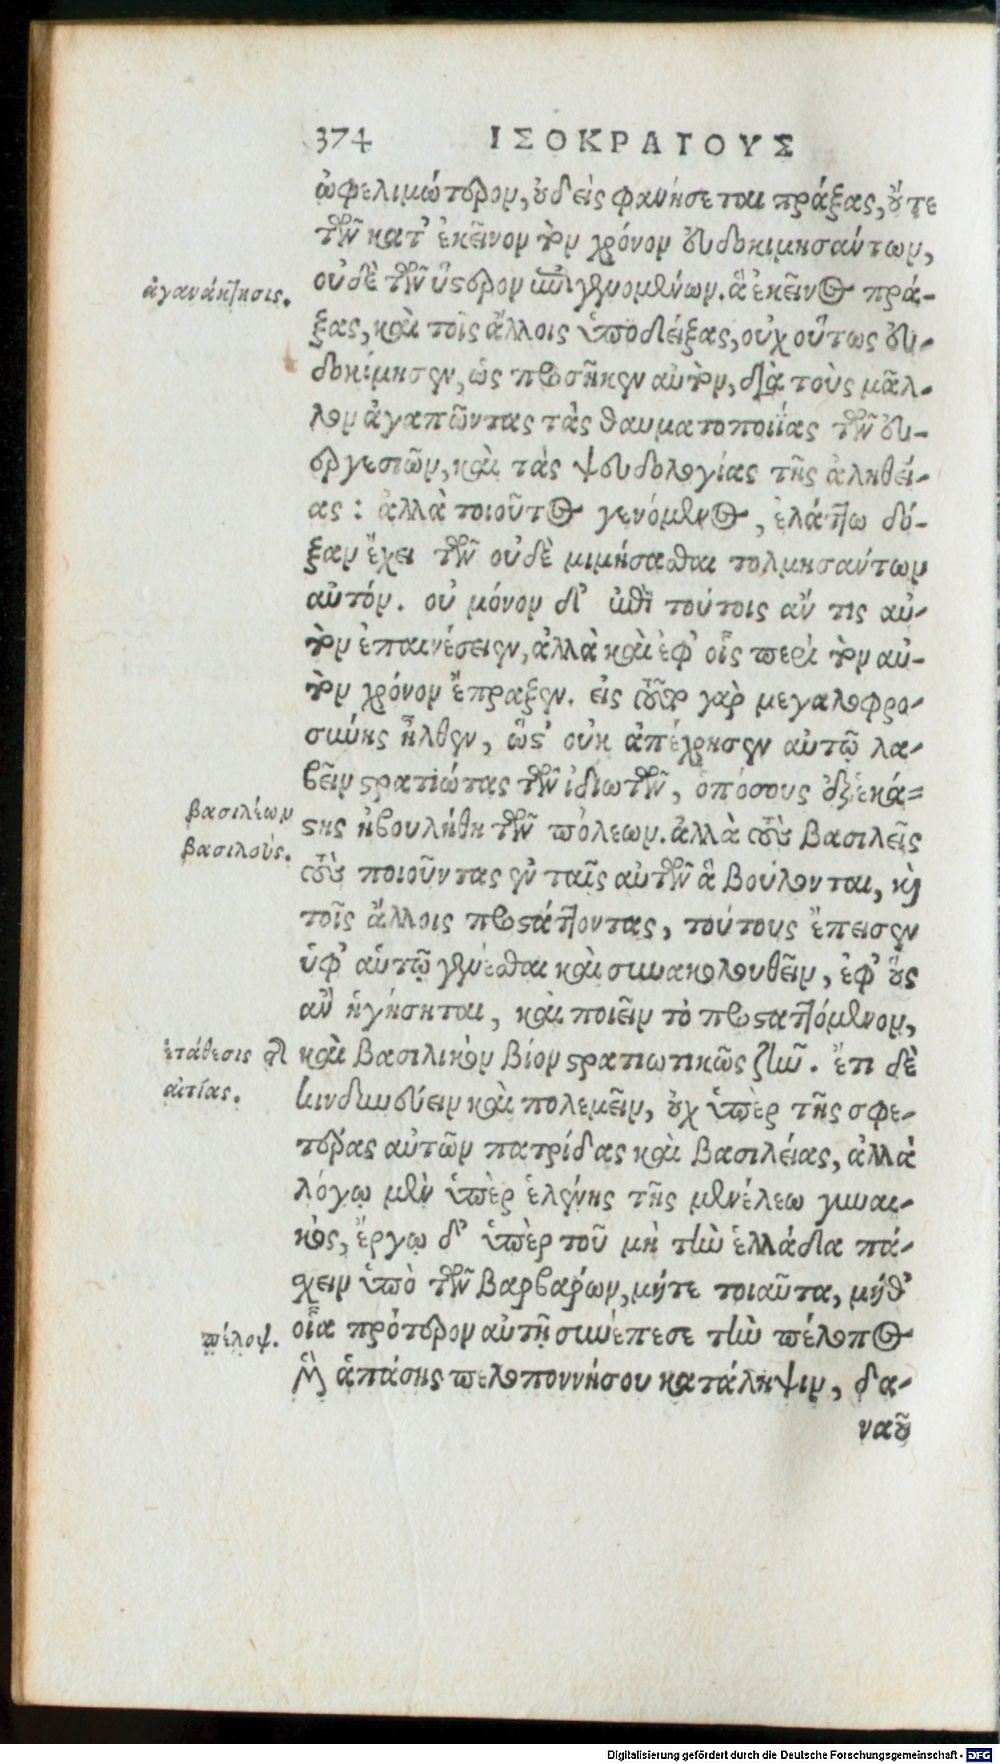 374 ΙΣΟΚΡΑΤΟΥΣ
ὠφελιμώτερον, οὐδεὶς φανήσεται πράξας, οὔτε
τῶν κατ' ἐκεῖνον τὸν χρόνον εὐδοκιμησάντων,
ἀγανάκτησις.
οὐδὲ τῶν ὕστερον ἐπιγενομένων. ἃ ἐκεῖνος πρά-
ξας, καὶ τοῖς ἄλλοις ὑποδείξας, οὐχ οὕτως εὐ-
δοκίμησεν, ὡς προσῆκεν αὐτὸν, διὰ τοὺς μᾶλ-
λον ἀγαπῶντας τὰς θαυματοποιίας τῶν εὐ-
εργεσιῶν, καὶ τὰς ψευδολογίας τῆς ἀληθεί-
ας : ἀλλὰ τοιοῦτος γενόμενος, ἐλάττω δό-
ξαν ἔχει τῶν οὐδὲ μιμήσασθαι τολμησάντων
αὐτόν. οὐ μόνον δ' ἐπὶ τούτοις ἄν τις αὐ-
τὸν ἐπαινέσειεν, ἀλλὰ καὶ ἐφ' οἷς περὶ τὸν αὐ-
τὸν χρόνον ἔπραξεν. εἰς τοῦτο γὰρ μεγαλοφρο-
σύνης ἦλθεν, ὥστ' οὐκ ἀπέχρησεν αὐτῷ λα-
βεῖν στρατιώτας τῶν ἰδιωτῶν, ὁπόσους ἐξ ἑκά-
βασιλέων
βασιλεύς.
στης ἠβουλήθη τῶν πόλεων. ἀλλὰ τοὺς βασιλεῖς
τοὺς ποιοῦντας ἐν ταῖς αὐτῶν ἃ βούλονται, καὶ
τοῖς ἄλλοις προστάττοντας, τούτους ἔπεισεν
ὑφ' αὑτῷ γενέσθαι καὶ συνακολουθεῖν, ἐφ' οὓς
ἂν ἡγήσηται, καὶ ποιεῖν τὸ προσταττόμενον,
αἰτίας.
καὶ βασιλικὸν βίον στρατιωτικῶς ζῆν. ἔτι δὲ
κινδυνεύειν καὶ πολεμεῖν, οὐχ ὑπὲρ τῆς σφε-
τέρας αὐτῶν πατρίδας καὶ βασιλείας, ἀλλὰ
λόγῳ μὲν ὑπὲρ ἑλένης τῆς μενέλεω γυναι-
κὸς, ἔργῳ δ' ὑπὲρ τοῦ μὴ τὴν ἑλλάδα πά-
σχειν ὑπὸ τῶν βαρβάρων, μήτε τοιαῦτα, μήθ'
πέλοψ.
οἷα πρότερον αὐτῇ συνέπεσε τὴν πέλοπος
μὲν ἁπάσης πελοποννήσου κατάληψιν, δα-
ναοῦ
Digitalisierung gefördert durch die Deutsche Forschungsgemeinschaft - DFG